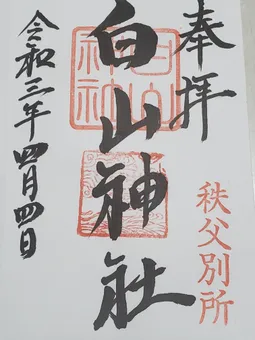 奉拝
秩父別所
白山神社
令和三年四月四日